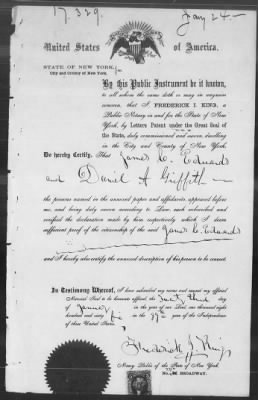 17,329.
Jany 24 —
United States of America.
STATE OF NEW YORK,
City and County of New York.
By this Public Instrument be it known,
to all whom the same doth or may in anywise
concern, that I, FREDERICK I. KING, a
Public Notary in and for the State of New
York, by Letters Patent under the Great Seal of
the State, duly commissioned and sworn, dwelling
in the City and County of New York,
Do hereby Certify, That James C. Edwards
and Daniel A Griffeth
the persons named in the annexed paper and affidavits, appeared before
me, and being duly sworn according to Law, each subscribed and
verified the declaration made by him respectively which I deem
sufficient proof of the citizenship of the said James C. Edwards
and I hereby also certify the annexed description of his person to be correct.
In Testimony Whereof, I have subscribed my name and caused my official
Notarial Seal to be hereunto affixed, the Twenty third day
of January in the year of our Lord, one thousand eight
hundred and sixty five in the 89th year of the Independence
of these United States.
Frederick I. King
Notary Public of the State of New York.
BROADWAY.